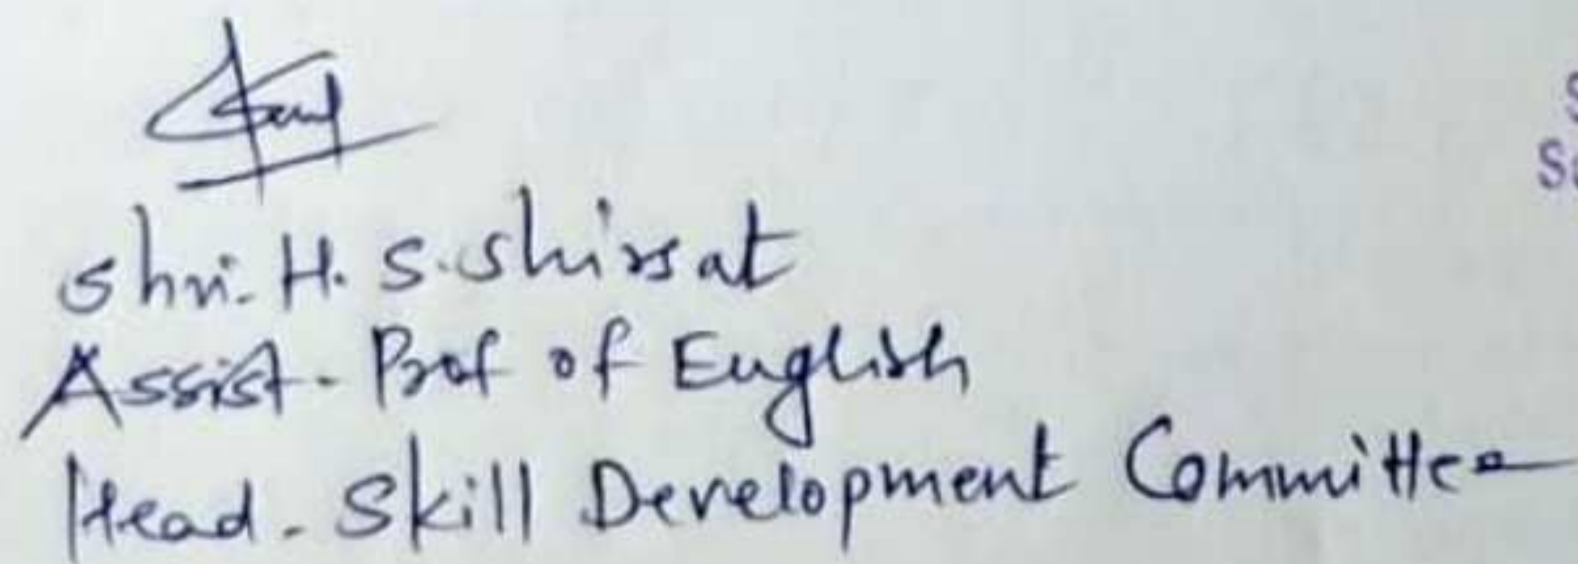 Shri. H. S. Shirsat
Assist. Prof of English
Head - Skill Development Committee